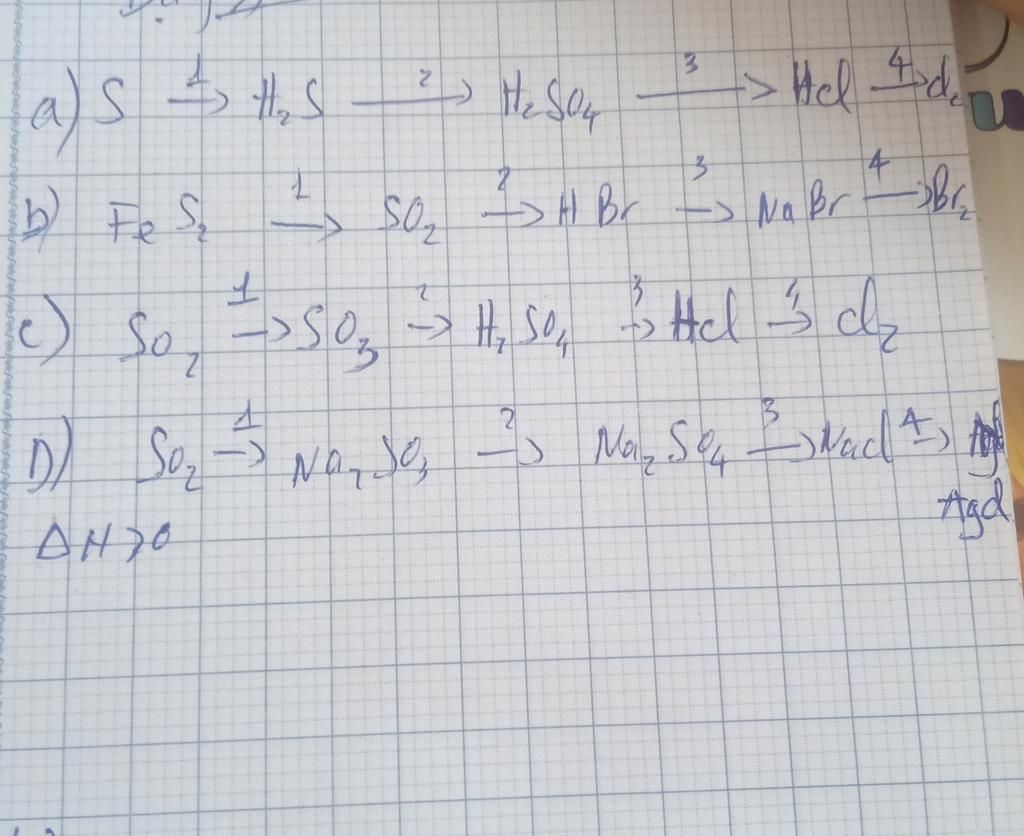 a) S 1→ H₂S 2→ H₂SO₄ 3→ Hcl 4→ cl₂
b) FeS₂ 1→ SO₂ 2→ HBr 3→ NaBr 4→ Br₂
c) SO₂ 1→ SO₃ 2→ H₂SO₄ 3→ Hcl 4→ cl₂
D) SO₂ 1→ Na₂SO₃ 2→ Na₂SO₄ 3→ Nacl 4→
Agcl
ΔH>0